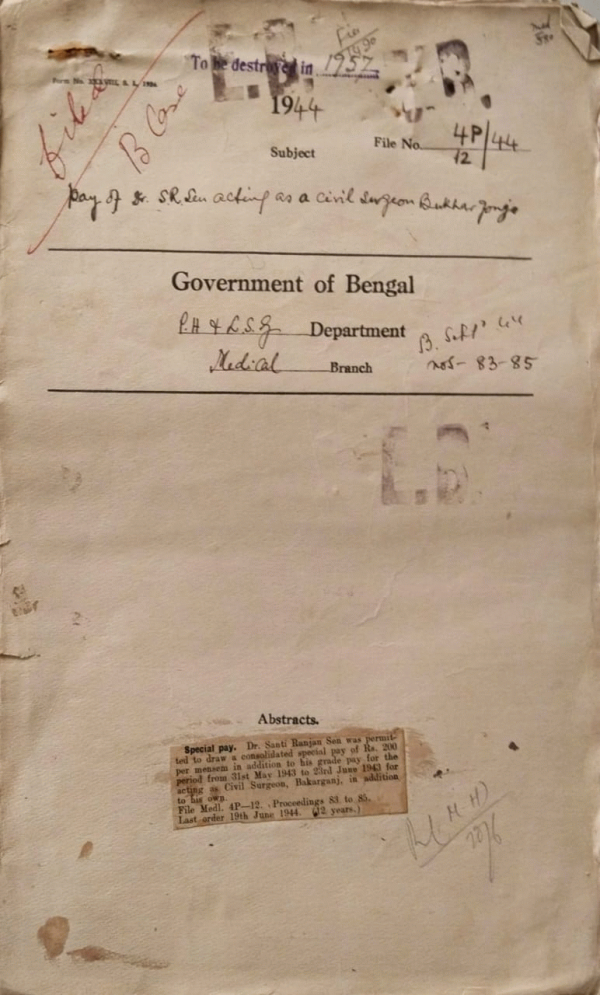 To be destroyed in 1957
1944
Subject
File No. 4P/44
12
Filed
B Case
Pay of Dr. SR. Sen acting as a civil surgeon
Government of Bengal
P.H & L.S.G Department
B. Sept' 44
Medical Branch
nos- 83-85
Abstracts.
Special pay. Dr. Santi Ranjan Sen was permit-
ted to draw a consolidated special pay of Rs. 200
per mensem in addition to his grade pay for the
period from 31st May 1943 to 23rd June 1943 for
acting as Civil Surgeon, Bakarganj, in addition
to his own.
File Medl. 4P—12. Proceedings 83 to 85.
Last order 19th June 1944. (12 years.)